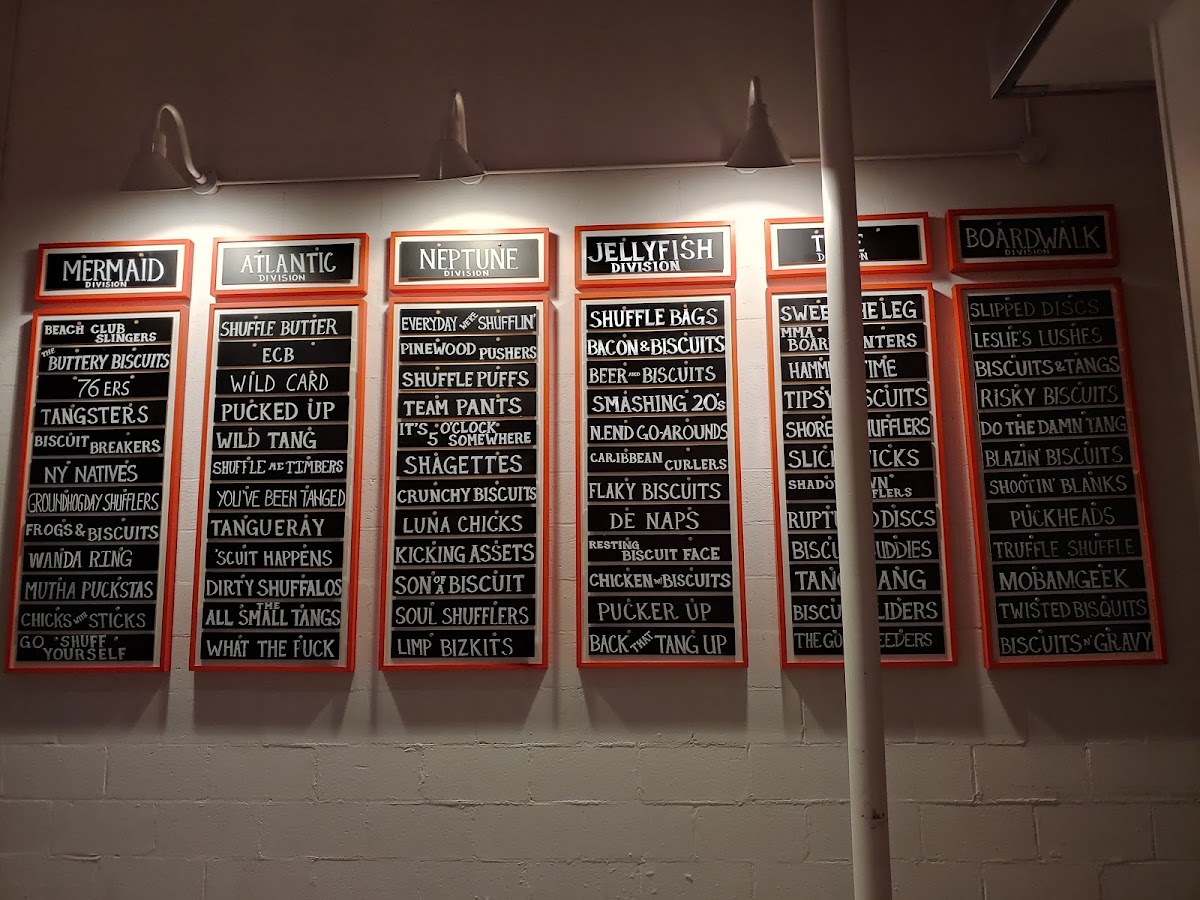 MERMAID
DIVISION
BEACH CLUB
SLINGERS
THE BUTTERY BISCUITS
76ERS
TANGSTER'S
BISCUIT BREAKERS
NY NATIVES
GROUNDHOGDAY SHUFFLERS
FROGS & BISCUITS
WANDA RING
MUTHA PUCKSTAS
CHICKS WITH STICKS
GO "SHUFF"
YOURSELF
ATLANTIC
DIVISION
SHUFFLE BUTTER
ECB
WILD CARD
PUCKED UP
WILD TANG
SHUFFLE ME TIMBERS
YOU'VE BEEN TANGED
TANGUERAY
'SCUIT HAPPENS
DIRTY SHUFFALOS
THE
ALL SMALL TANGS
WHAT THE FUCK
NEPTUNE
DIVISION
EVERYDAY WE'RE SHUFFLIN'
PINEWOOD PUSHERS
SHUFFLE PUFFS
TEAM PANTS
IT'S 5 O'CLOCK
SOMEWHERE
SHAGETTES
CRUNCHY BISCUITS
LUNA CHICKS
KICKING ASSETS
SON OF A BISCUIT
SOUL SHUFFLERS
LIMP BIZKITS
JELLYFISH
DIVISION
SHUFFLE BAGS
BACON & BISCUITS
BEER AND BISCUITS
SMASHING 20's
N.END GO-AROUNDS
CARIBBEAN CURLERS
FLAKY BISCUITS
DE NAPS
RESTING
BISCUIT FACE
CHICKEN W/ BISCUITS
PUCKER UP
BACK THAT TANG UP
SWEE HE LEG
MMA
BOAR NTERS
HAMM TIME
TIPSY SCUITS
SHORE UFFLERS
SLICK ICKS
SHADO WN
FLERS
RUPTU D DISCS
BISCU UDDIES
TANG ANG
BISCU LIDERS
THE GO EEDERS
BOARDWALK
DIVISION
SLIPPED DISCS
LESLIE'S LUSHES
BISCUITS & TANGS
RISKY BISCUITS
DO THE DAMN TANG
BLAZIN' BISCUITS
SHOOTIN' BLANKS
PUCKHEADS
TRUFFLE SHUFFLE
MOBAMGEEK
TWISTED BISQUITS
BISCUITS N' GRAVY